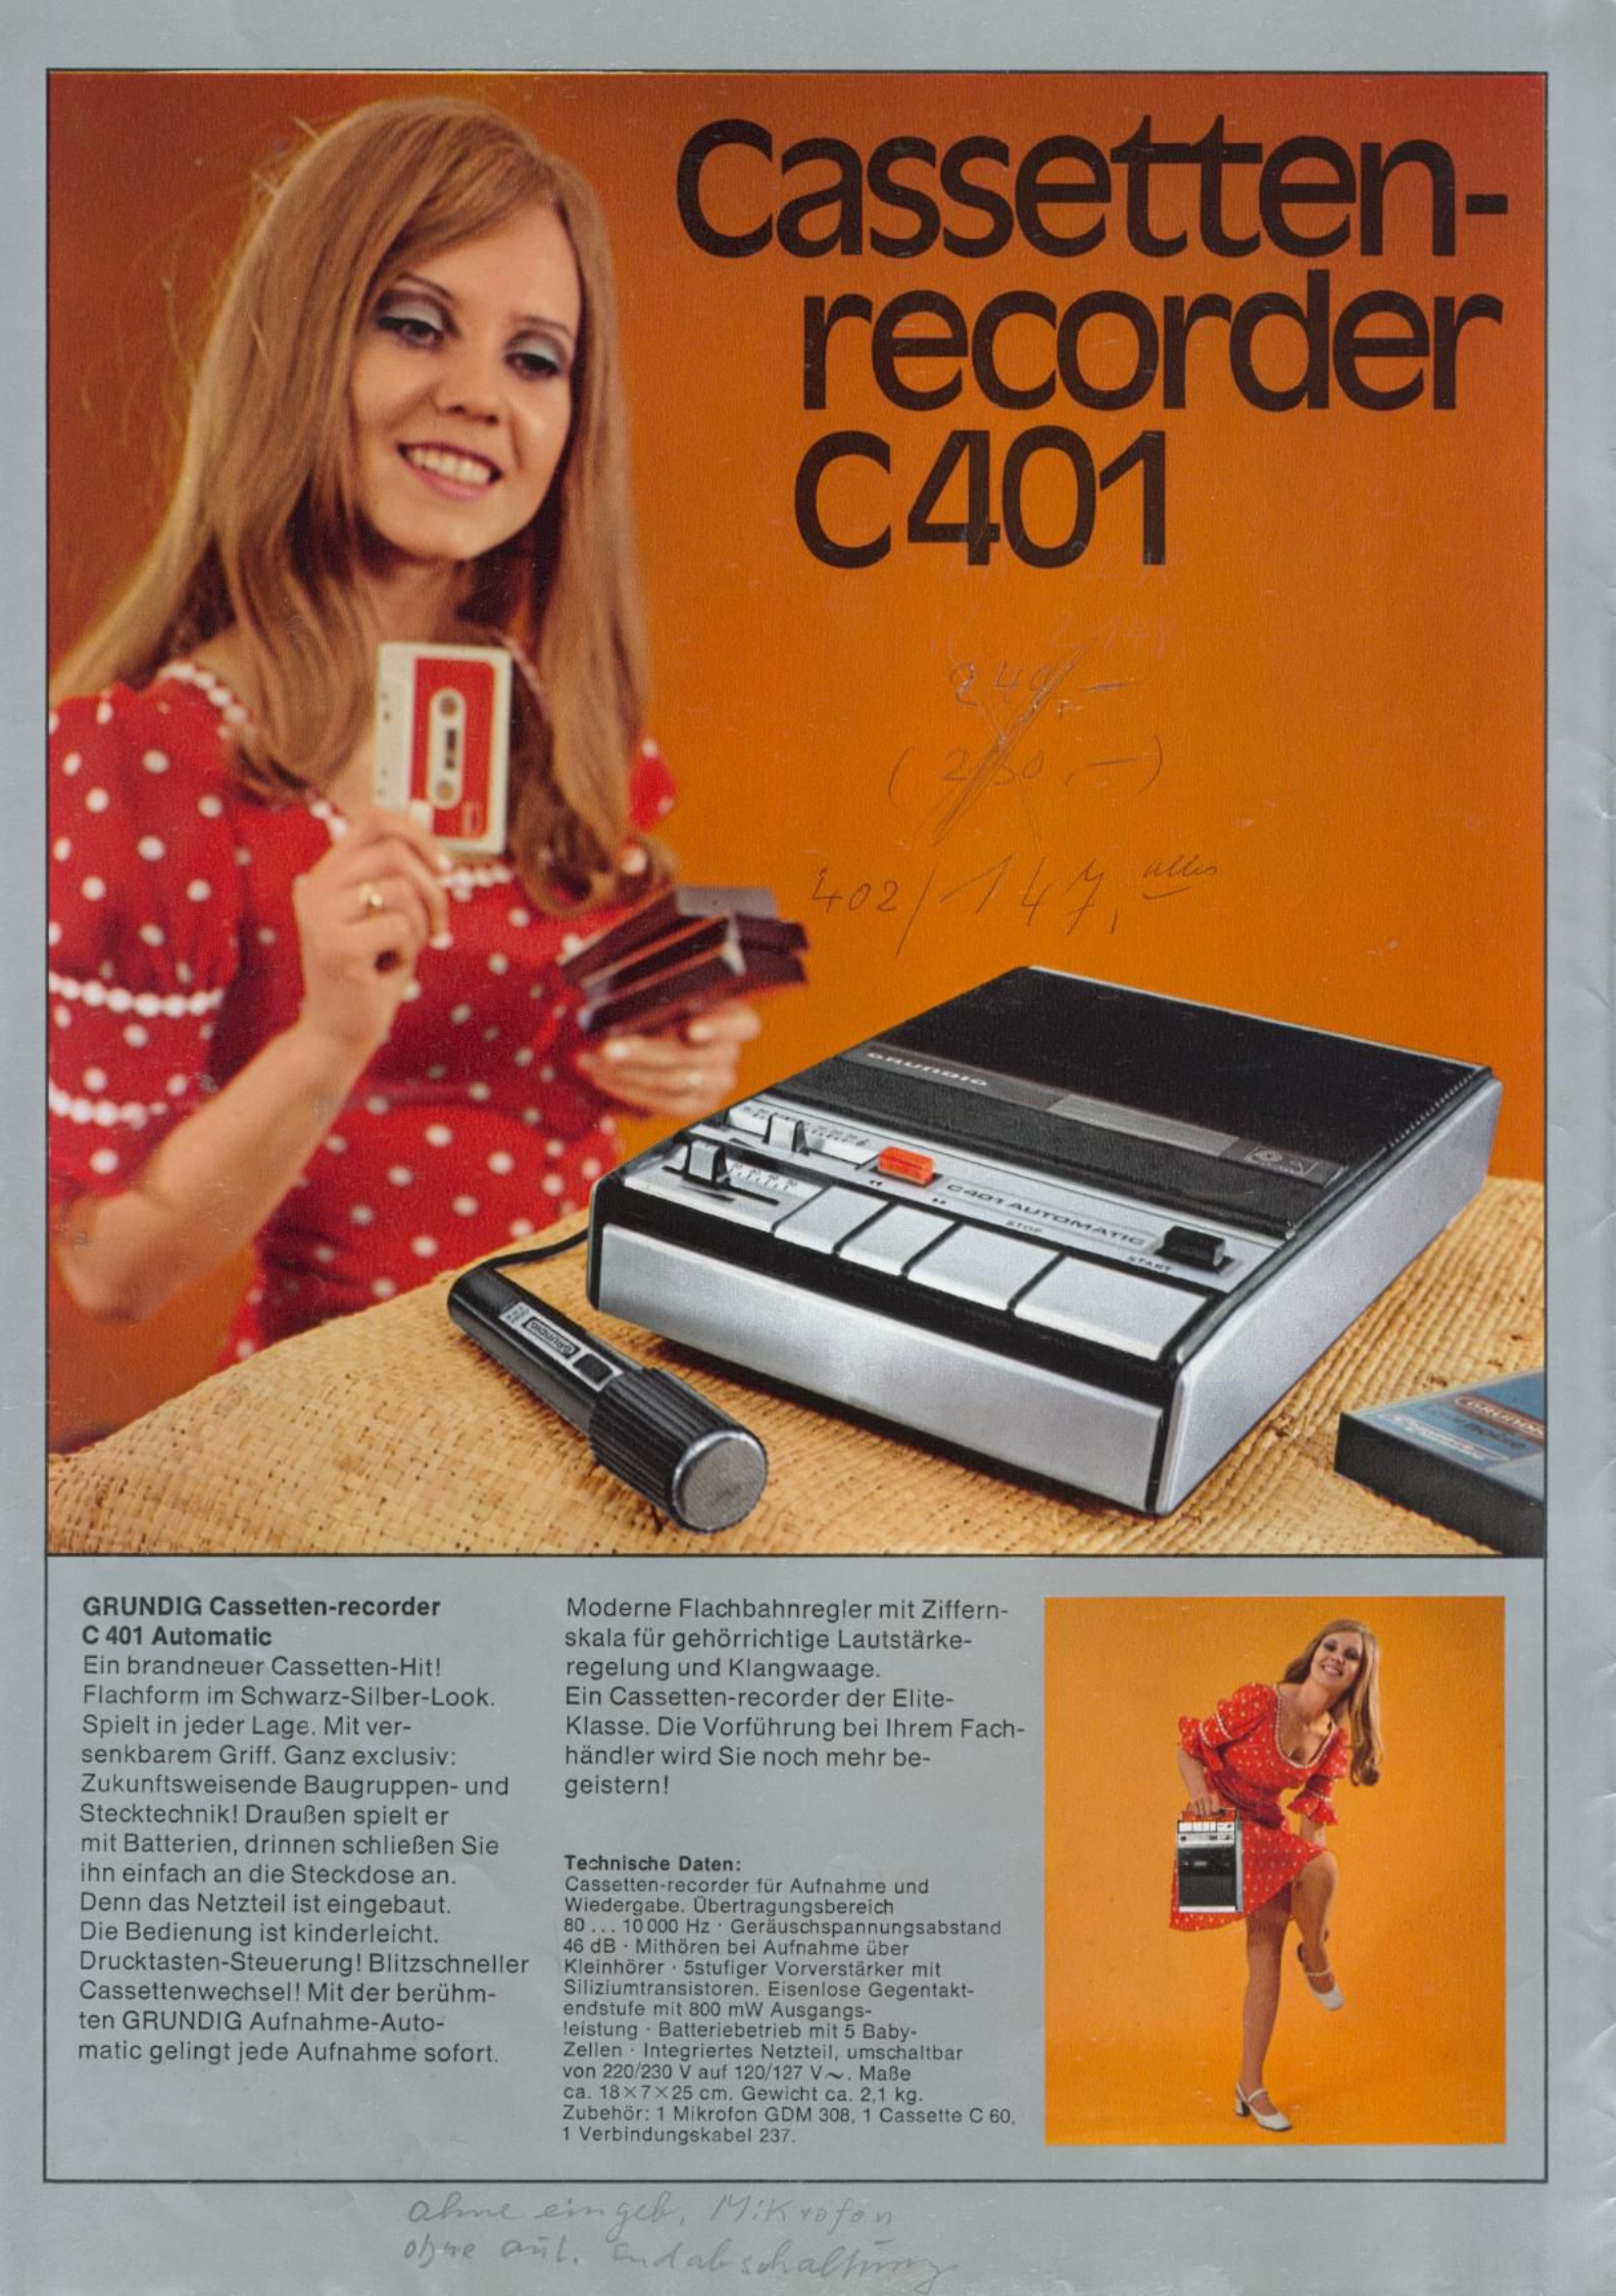 Cassetten-
recorder
C 401
240,-
402/ 147, alles
GRUNDIG
C 401 AUTOMATIC
STOP
START
GRUNDIG
GRUNDIG
GRUNDIG Cassetten-recorder
C 401 Automatic
Ein brandneuer Cassetten-Hit!
Flachform im Schwarz-Silber-Look.
Spielt in jeder Lage. Mit ver-
senkbarem Griff. Ganz exclusiv:
Zukunftsweisende Baugruppen- und
Stecktechnik! Draußen spielt er
mit Batterien, drinnen schließen Sie
ihn einfach an die Steckdose an.
Denn das Netzteil ist eingebaut.
Die Bedienung ist kinderleicht.
Drucktasten-Steuerung! Blitzschneller
Cassettenwechsel! Mit der berühm-
ten GRUNDIG Aufnahme-Auto-
matic gelingt jede Aufnahme sofort.
Moderne Flachbahnregler mit Ziffern-
skala für gehörrichtige Lautstärke-
regelung und Klangwaage.
Ein Cassetten-recorder der Elite-
Klasse. Die Vorführung bei Ihrem Fach-
händler wird Sie noch mehr be-
geistern!
Technische Daten:
Cassetten-recorder für Aufnahme und
Wiedergabe. Übertragungsbereich
80 ... 10 000 Hz · Geräuschspannungsabstand
46 dB · Mithören bei Aufnahme über
Kleinhörer · 5stufiger Vorverstärker mit
Siliziumtransistoren. Eisenlose Gegentakt-
endstufe mit 800 mW Ausgangs-
leistung · Batteriebetrieb mit 5 Baby-
Zellen · Integriertes Netzteil, umschaltbar
von 220/230 V auf 120/127 V~. Maße
ca. 18×7×25 cm. Gewicht ca. 2,1 kg.
Zubehör: 1 Mikrofon GDM 308, 1 Cassette C 60,
1 Verbindungskabel 237.
ohne eingeb. Mikrofon
ohne aut. Endabschaltung